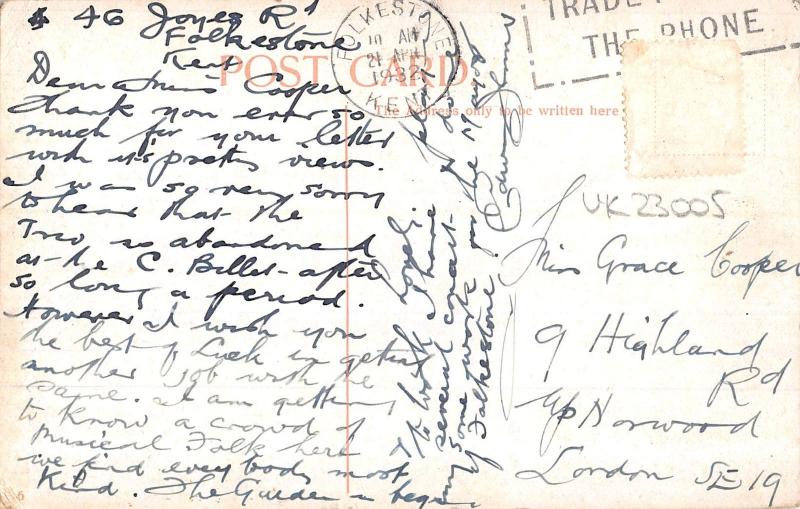 46 Joyes Rd
Folkestone
Kent
POST CARD
The Address only to be written here
FOLKESTONE
10 AM
21 APR
1932
KENT
TRADE
THE PHONE
Dear Miss Cooper
thank you ever so
much for your letter
with it's pretty views.
I was so very sorry
to hear that the
Trio so abandoned
at the C. Billet after
so long a period.
However I wish you
the best of Luck in getting
another job with the
same. I am getting
to know a crowd of
musical Folk here
we find every body most
kind. The Garden is begin
to look lovely.
I have
several concert
some work
on the Mayor
of Folkestone.
UK23005
Miss Grace Cooper
9 Highland
Rd
Up Norwood
London SE19